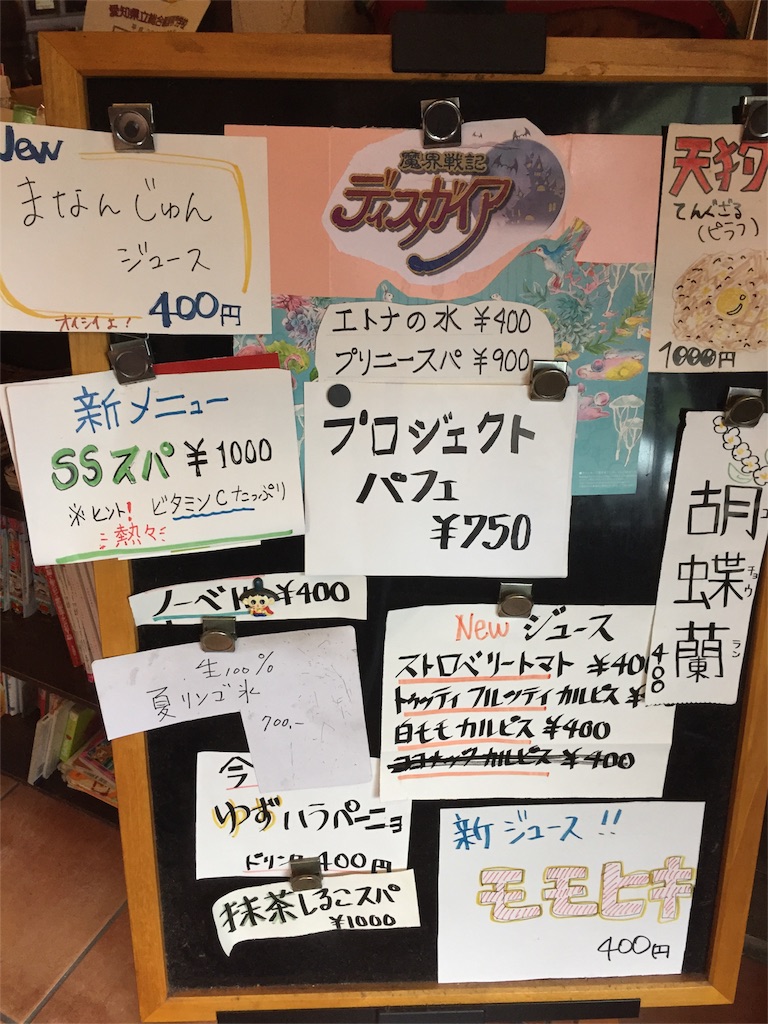 愛知県立総合看護専門学校
New
まなんじゅん
ジュース
オイシイェ! 400円
魔界戦記
ディスガイア
エトナの水 ¥400
プリニースパ ¥900
天狗
てんぐざる
(ピラフ)
1000円
新メニュー
SSスパ ¥1000
※ヒント! ビタミンCたっぷり
熱々
プロジェクト
パフェ
¥750
胡蝶蘭
チョウ
ラン
400
ノーベル ¥400
生100%
夏リンゴ氷
700.-
New ジュース
ストロベリートマト ¥400
トゥッティフルッティカルピス ¥
白モモカルピス ¥400
ココナッツカルピス ¥400
今
ゆずハラペーニョ
ドリンク 400円
抹茶しるこスパ
¥1000
新ジュース!!
モモヒキ
400円